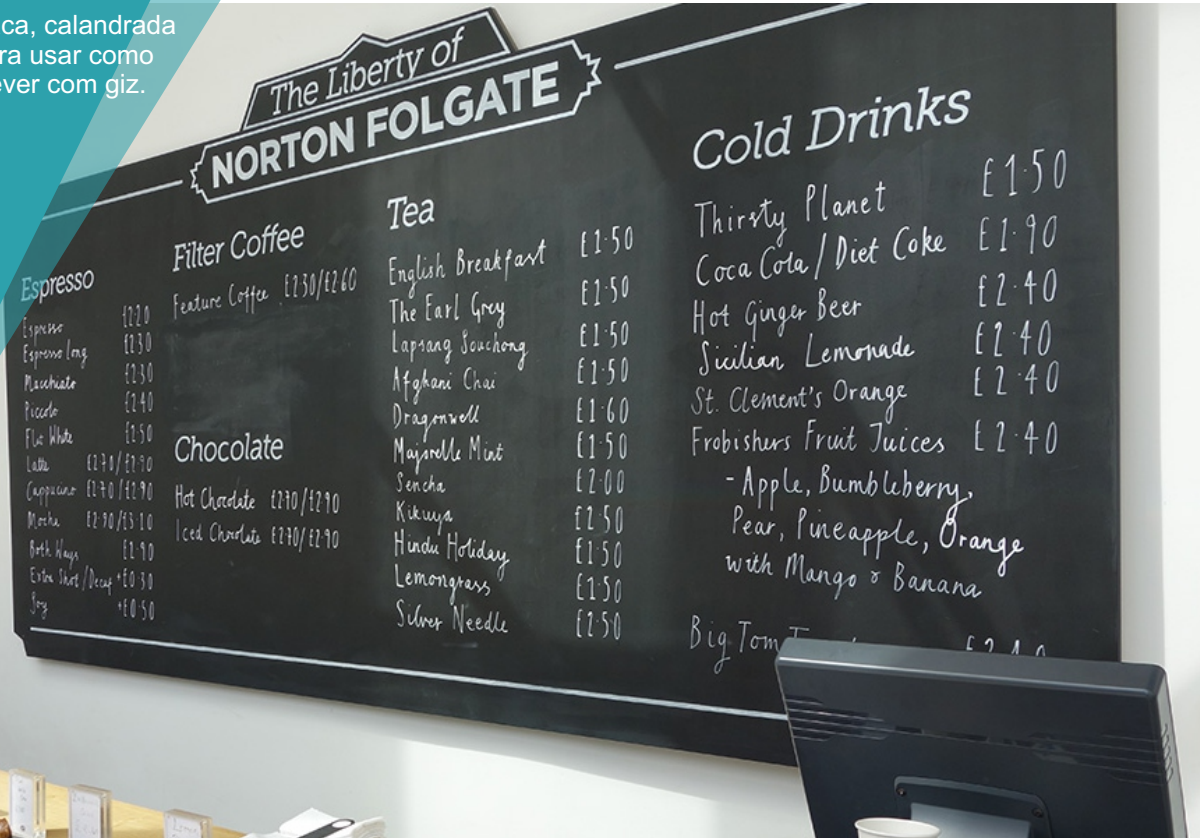 ca, calandrada
ra usar como
ever com giz.
The Liberty of
NORTON FOLGATE
Espresso
Espresso £2·20
Espresso Long £2·30
Macchiato £2·30
Piccolo £2·40
Flat White £2·50
Latte £2·70/£2·90
Cappucino £2·70/£2·90
Mocha £2·90/£3·10
Both Ways £2·90
Extra Shot/Decaf +£0·30
Soy +£0·50
Filter Coffee
Feature Coffee £2·30/£2·60
Chocolate
Hot Chocolate £2·70/£2·90
Iced Chocolate £2·70/£2·90
Tea
English Breakfast £1·50
The Earl Grey £1·50
Lapsang Souchong £1·50
Afghani Chai £1·50
Dragonwell £1·60
Majorelle Mint £1·50
Sencha £2·00
Kikuya £2·50
Hindu Holiday £1·50
Lemongrass £1·50
Silver Needle £2·50
Cold Drinks
Thirsty Planet £1·50
Coca Cola / Diet Coke £1·90
Hot Ginger Beer £2·40
Sicilian Lemonade £2·40
St. Clement's Orange £2·40
Frobishers Fruit Juices £2·40
- Apple, Bumbleberry,
Pear, Pineapple, Orange
with Mango & Banana
Big Tom